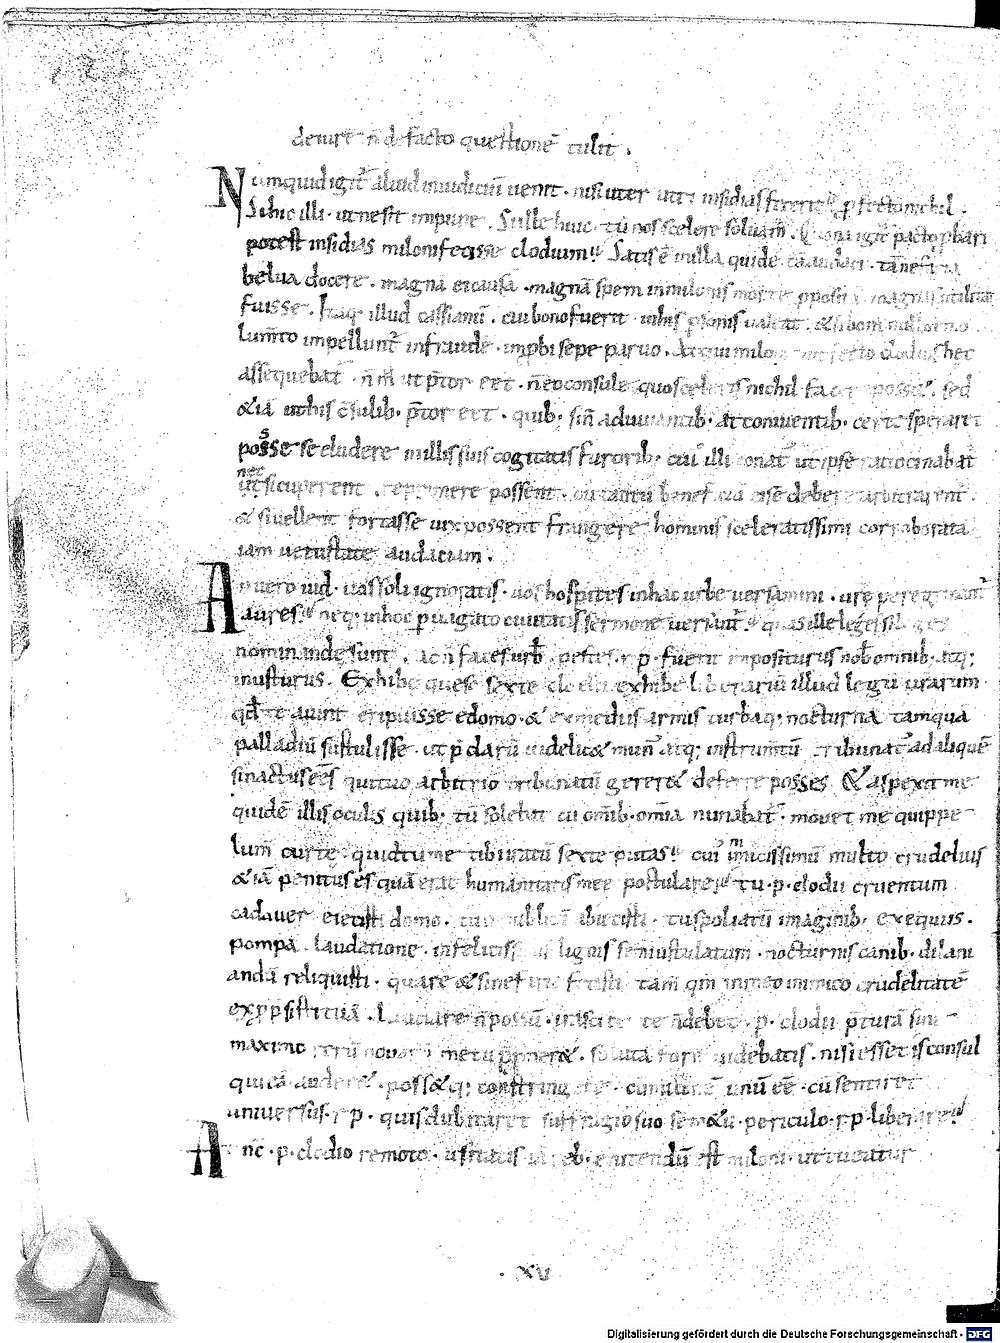 de iure n̄ de facto questionē tulit.
Numquid igit̄ aliud in iudiciū uenit · nisi uter utri insidias fecerit? ꝓfecto nichil.
Si hic illi · ut ne sit impune. Si ille huic · tū nos scelere soluam̄. Quonā igit̄ pacto ꝓbari
potest insidias miloni fecisse clodium? Satis ē in illa quidē tā audaci · tā nefaria
belua docere · magnā ei causā · magnā spem in milonis morte ꝓposita magnas utilitates
fuisse. Itaq; illud cassianū · cui bono fuerit in his ꝑsonis ualeat · &si boni nullo emo
lum̄to impellunt̄ in fraudē · imꝓbi sepe paruo. Atqui milone interfecto clodius hec
assequebat̄ · n̄ m̊ ut p̄tor eēt · n̄ eo consule quo sceleris nichil facere posset. sed
&iā ut his c̄sulib· p̄tor eēt · quib· si n̄ adiuuantib· at coniuentib· certe speraret
posse se eludere in illis suis cogitatis furorib· cui illi conat̄ ut ipse ratiocinabat̄
nec
ut si cuperent reprimere possent · cū tantū beneficiū ei se debere arbitrarent̄.
& si uellent fortasse uix possent frangere hominis sceleratissimi corroborata
iam uetustate audaciam.
An uero iud· uos soli ignoratis · uos hospites in hac urbe uersamini · ure peregrinant̄
aures? neq; in hoc ꝑuagato ciuitatis sermone uersant̄? quas ille leges si leges
nominande sunt ac n̄ faces urb̄ pestes r·p· fuerit impositurus nob̄ omnib· atq;
inusturus. Exhibe quesē sexte clodi exhibe librariū illud legū urarum
qd̄ te aiunt eripuisse e domo · & ex mediis armis turbaq; nocturna tamquā
palladiū sustulisse · ut p̄clarū uidelic& mun̄ atq; instrum̄tū tribunat̄ ad aliquē
si nactus eēs qui tuo arbitrio tribunatū gerer& deferre posses. & aspexit me
quidē illis oculis quib· tū solebat cū omīb· omīa minabat̄ · mouet me quippe
lum̄ curie · quid tu me tibi iratū sexte putas? cui inimicissimū multo crudelius
&iā penitus es quā erat humanitatis mee postulare? tu · p· clodii cruentum
cadauer eiecisti domo · tu in publicū abiecisti · tu spoliatū imaginib· exequiis.
pompa · laudatione · infelicissimis lignis semiustulatum · nocturnis canib· dilani
andū reliquisti · quare &si nefarie fecisti · tam̄ qm̄ in meo inimico crudelitatē
exꝓpsisti tuā. Laudare n̄ possū · irasci certe n̄ debeo · p· clodii p̄turā sine
maximo rerū nouarū metu ꝓponi& · solutā fore uidebatis · nisi esset is consul
qui eā auder& poss&q; constringere · cū milonē unū eē · cū sentiret
uniuersus r·p· quis dubitaret suffragio suo se m&u · periculo r·p· liberare?
At nc̄ · p· clodio remoto · usitatis iā reb· enitendū est miloni · ut tueatur
· xv
Digitalisierung gefördert durch die Deutsche Forschungsgemeinschaft · DFG